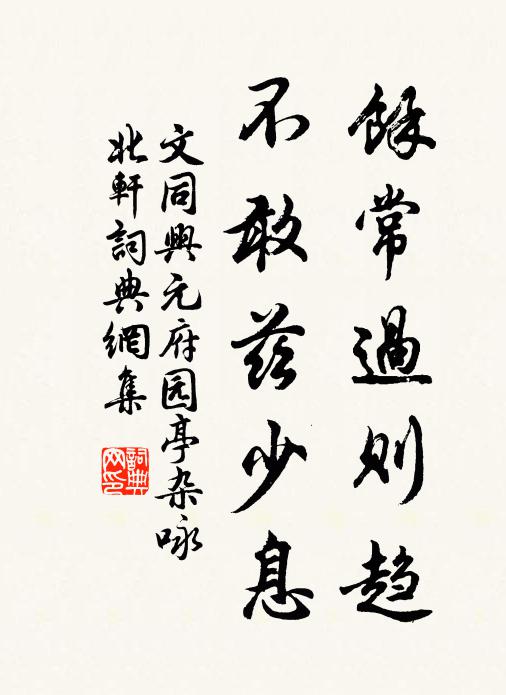 餘常過則趋
不敢兹少息
文同興元府园亭杂咏
北軒詞典網集
詞典网印